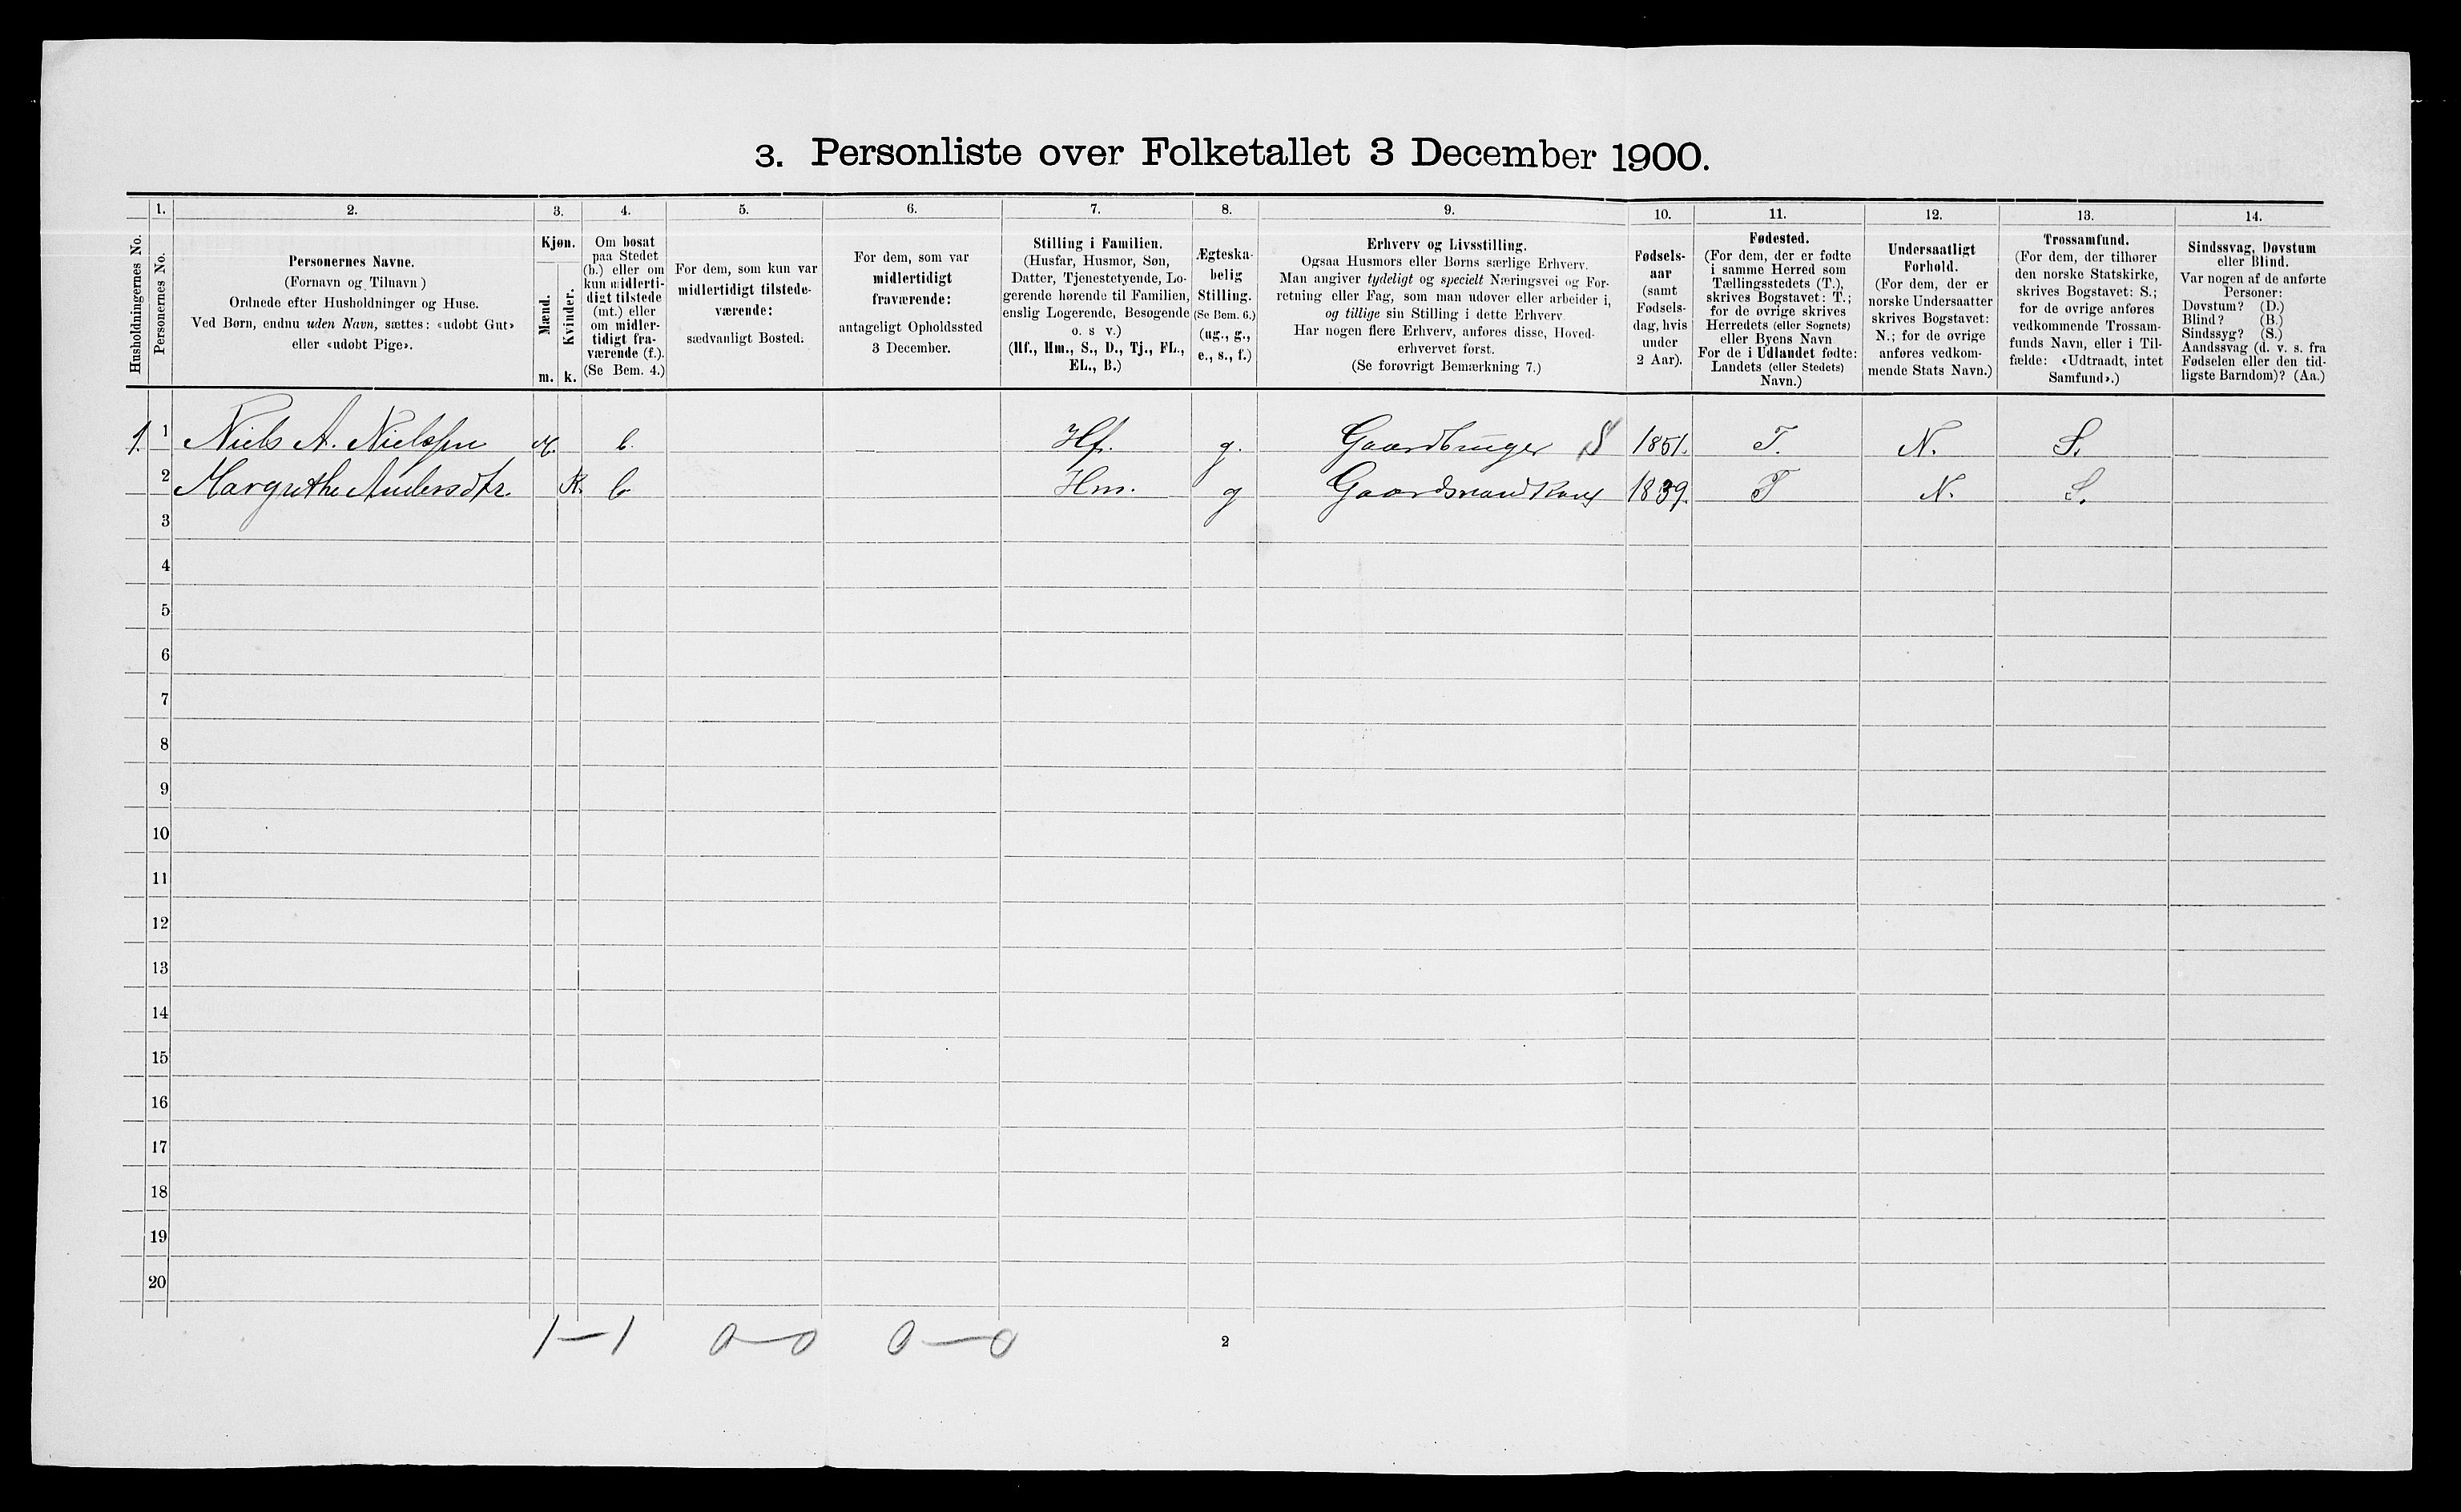 3. Personliste over Folketallet 3 December 1900.
1. 2. 3. 4. 5. 6. 7. 8. 9. 10. 11. 12. 13. 14.
Husholdningernes No.
Personernes No.
Personernes Navne.
(Fornavn og Tilnavn)
Ordnede efter Husholdninger og Huse.
Ved Børn, endnu uden Navn, sættes: «udøbt Gut»
eller «udøbt Pige».
Kjøn.
Mænd.
Kvinder.
m. k.
Om bosat
paa Stedet
(b.) eller om
kun midlerti-
digt tilstede
(mt.) eller
om midler-
tidigt fra-
værende (f.).
(Se Bem. 4.)
For dem, som kun var
midlertidigt tilstede-
værende:
sædvanligt Bosted.
For dem, som var
midlertidigt
fraværende:
antageligt Opholdssted
3 December.
Stilling i Familien.
(Husfar, Husmor, Søn,
Datter, Tjenestetyende, Lo-
gerende hørende til Familien,
enslig Logerende, Besøgende
o. s v.)
(Hf., Hm., S., D., Tj., FL.,
EL., B.)
Ægteska-
belig
Stilling.
(Se Bem. 6.)
(ug., g.,
e., s., f.)
Erhverv og Livsstilling.
Ogsaa Husmors eller Børns særlige Erhverv.
Man angiver tydeligt og specielt Næringsvei og For-
retning eller Fag, som man udøver eller arbeider i,
og tillige sin Stilling i dette Erhverv
Har nogen flere Erhverv, anføres disse, Hoved-
erhvervet først.
(Se forøvrigt Bemærkning 7.)
Fødsels-
aar
(samt
Fødsels-
dag, hvis
under
2 Aar).
Fødested.
(For dem, der er fødte
i samme Herred som
Tællingsstedets (T.),
skrives Bogstavet: T.;
for de øvrige skrives
Herredets (eller Sognets)
eller Byens Navn
For de i Udlandet fødte:
Landets (eller Stedets)
Navn.)
Undersaatligt
Forhold.
(For dem, der er
norske Undersaatter
skrives Bogstavet:
N.; for de øvrige
anføres vedkom-
mende Stats Navn.)
Trossamfund.
(For dem, der tilhører
den norske Statskirke,
skrives Bogstavet: S.;
for de øvrige anføres
vedkommende Trossam-
funds Navn, eller i Til-
fælde: «Udtraadt, intet
Samfund».)
Sindssvag, Døvstum
eller Blind.
Var nogen af de anførte
Personer:
Døvstum? (D.)
Blind? (B.)
Sindssyg? (S.)
Aandssvag (d. v. s. fra
Fødselen eller den tid-
ligste Barndom)? (Aa.)
1. 1 Niels A. Nielssen M. b. Hf. g. Gaardbruger S 1851. T. N. S.
2 Margrethe Andersdtr. K. b Hm. g Gaardmand Kone 1839. T N. S.
3
4
5
6
7
8
9
10
11
12
13
14
15
16
17
18
19
20
1—1 0—0 0—0 2